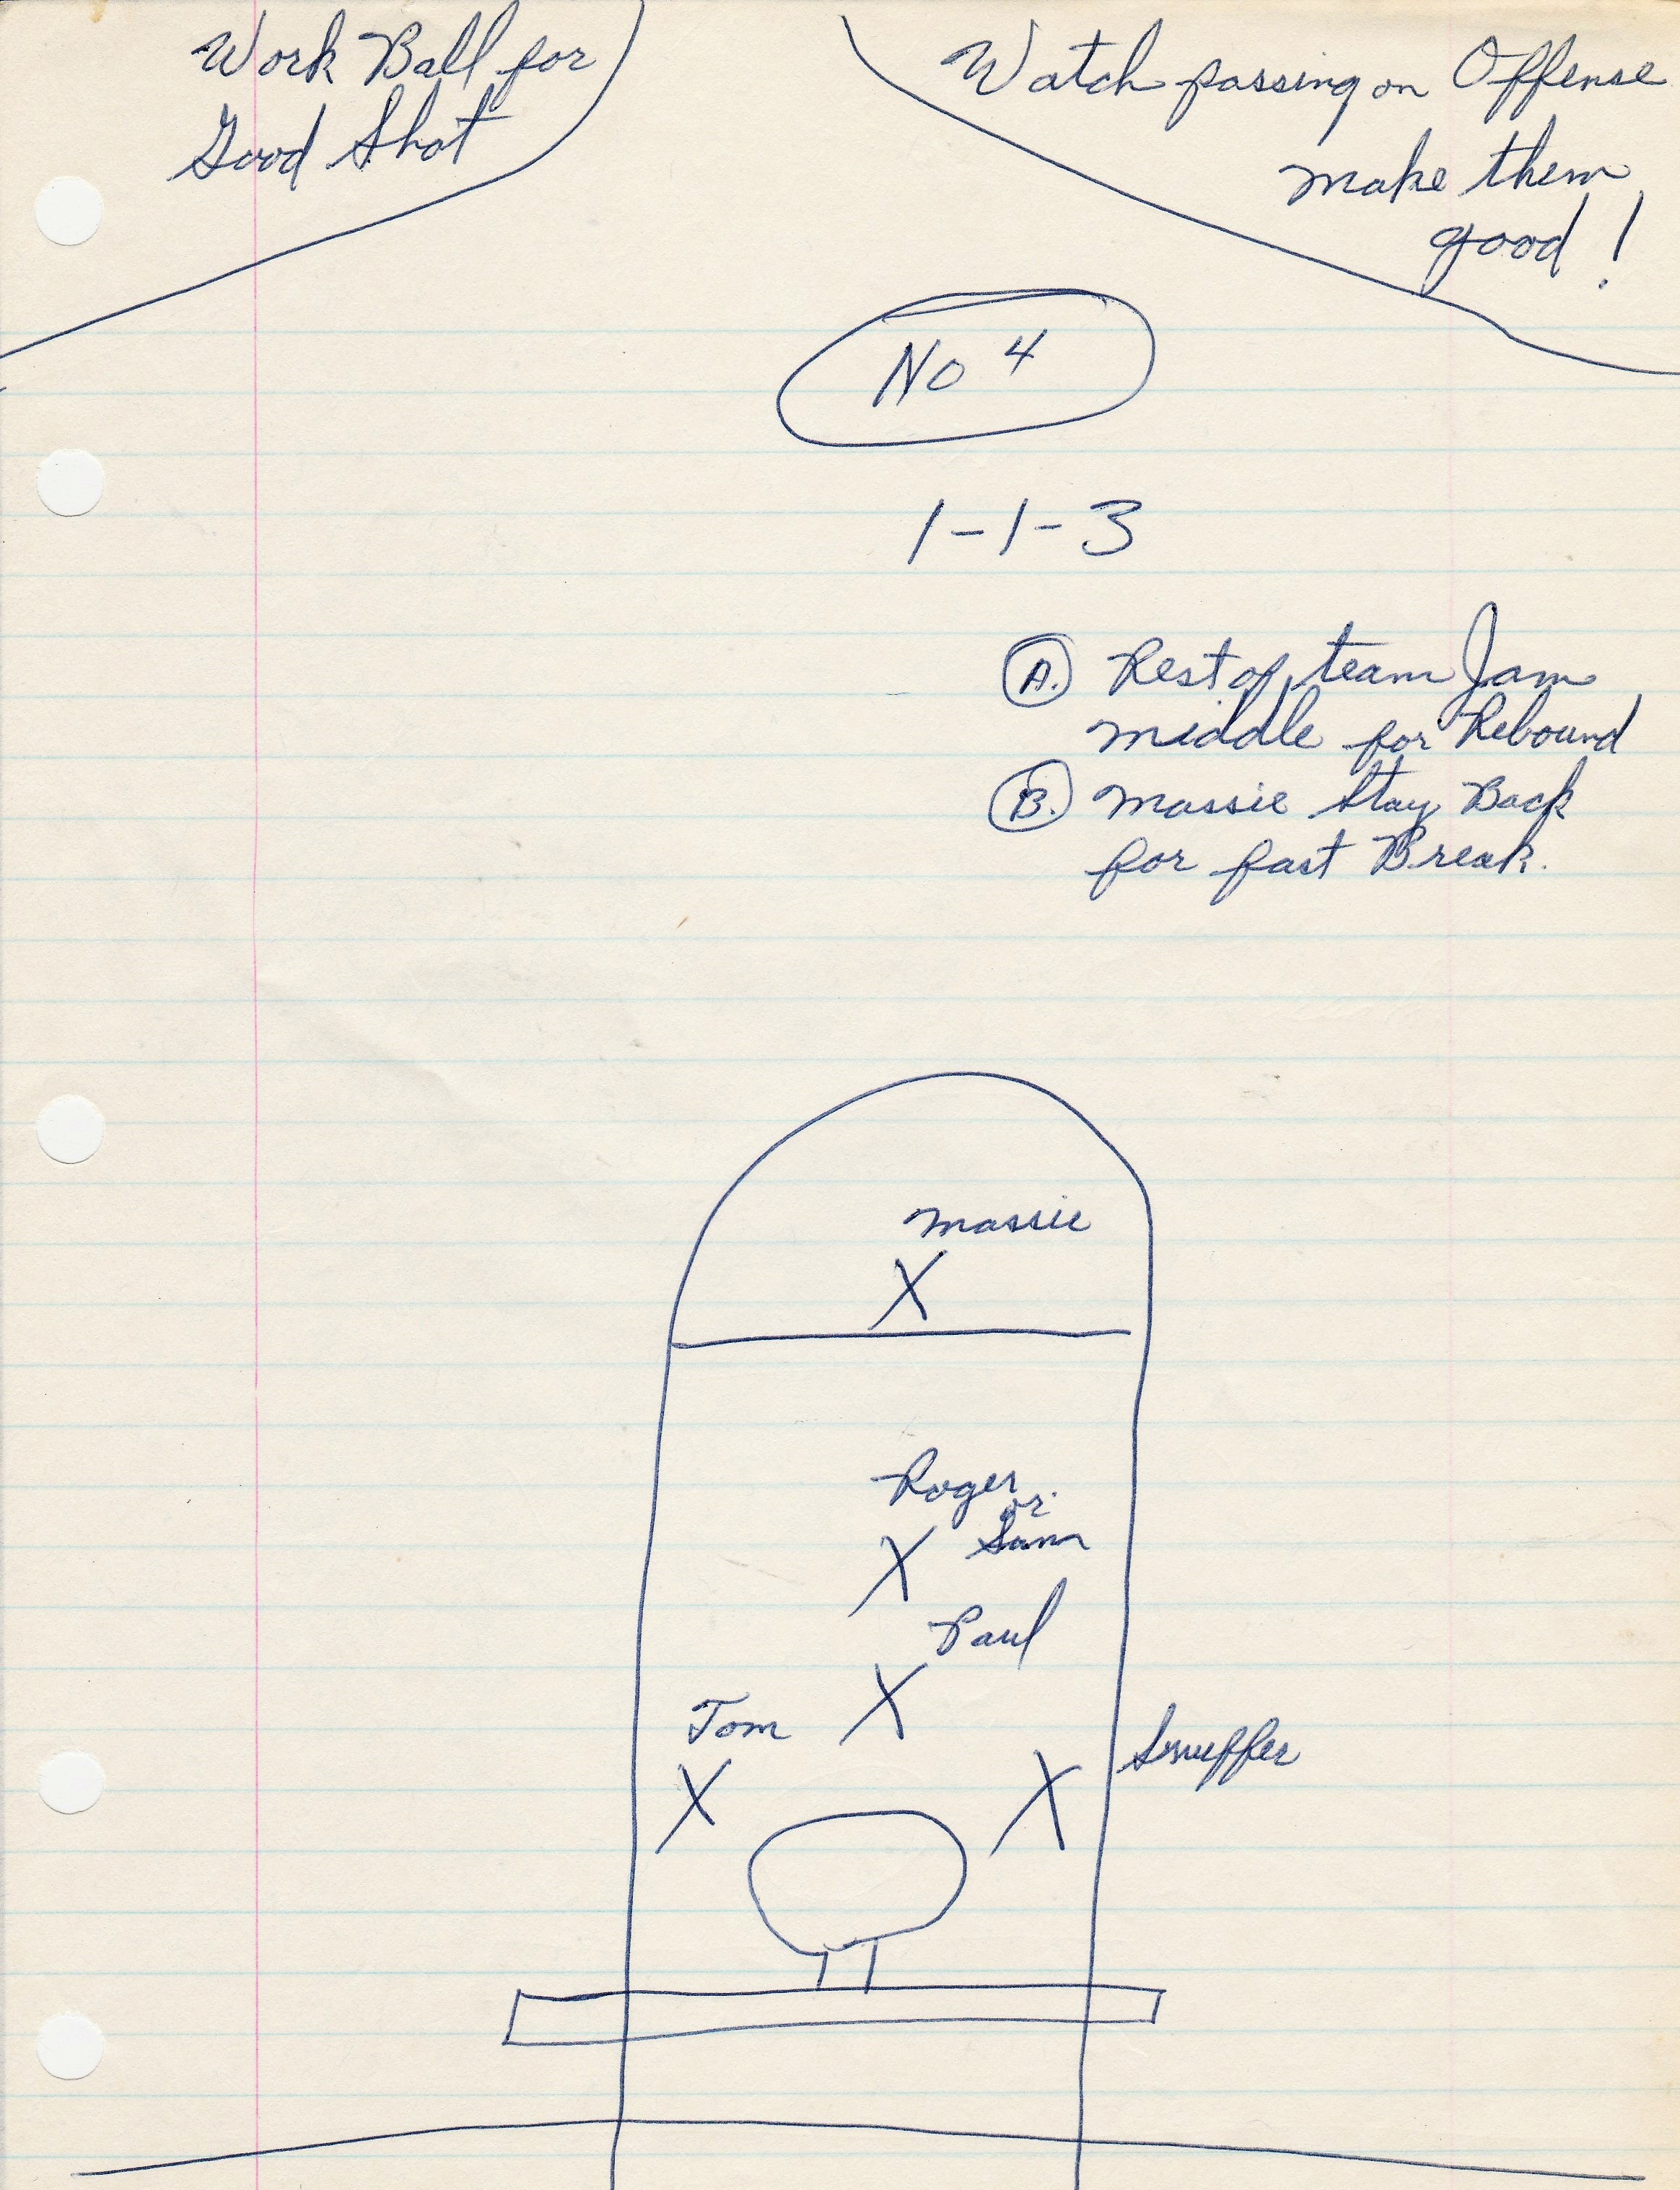 Work Ball for
Good Shot
Watch passing on Offense
make them
good!
No 4
1-1-3
A. Rest of team Jam
middle for Rebound
B. Massie Stay Back
for fast Break.
Massie
X
Roger
or
X Sam
Paul
X
Tom
Snuffer
X X